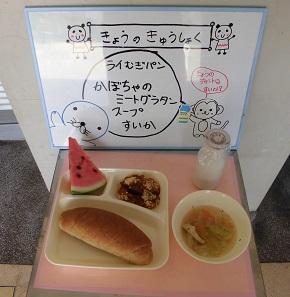 きょうの きゅうしょく
ライむぎパン
かぼちゃの
ミートグラタン
スープ
すいか